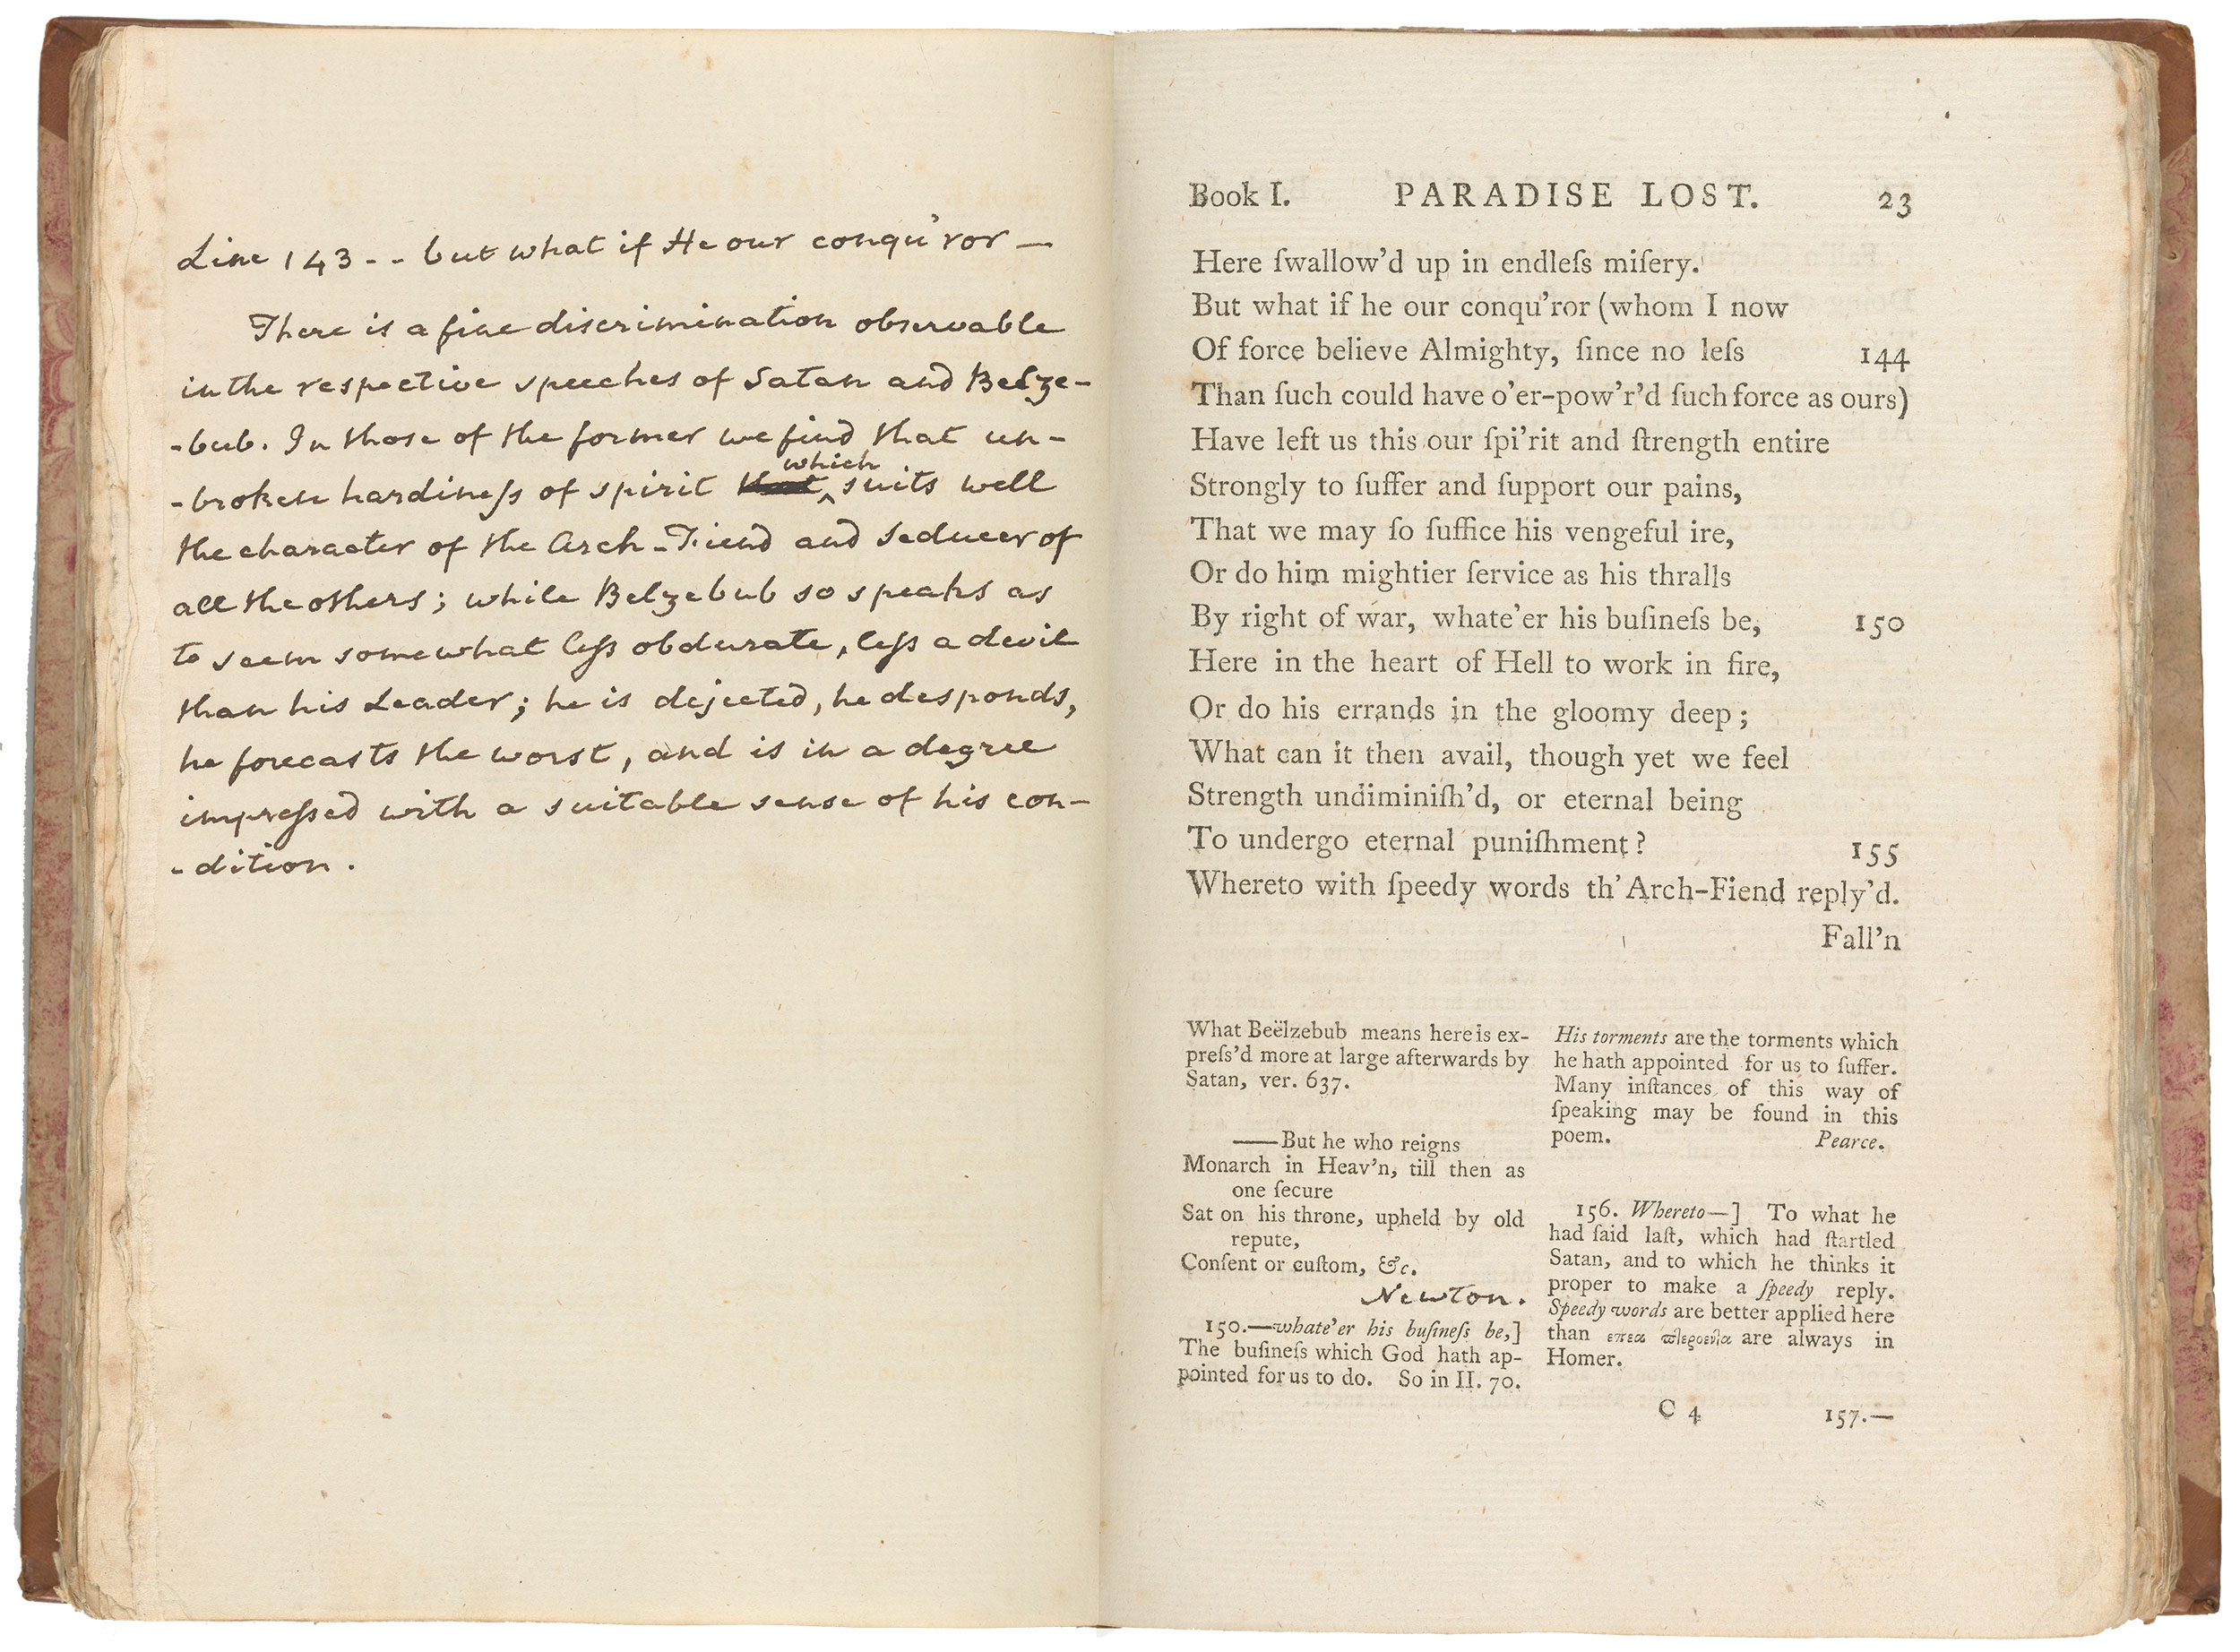 Line 143 - - but what if He our conqu'ror —
There is a fine discrimination observable
in the respective speeches of Satan and Belze-
-bub. In those of the former we find that un-
which
-broken hardineſs of spirit that ^ suits well
the character of the Arch-Fiend and Seducer of
all the others; while Belzebub so speaks as
to seem somewhat leſs obdurate, leſs a devil
than his Leader; he is dejected, he desponds,
he forecasts the worst, and is in a degree
impreſsed with a suitable sense of his con-
-dition.
Book I. PARADISE LOST. 23
Here ſwallow'd up in endleſs miſery.
But what if he our conqu'ror (whom I now
Of force believe Almighty, ſince no leſs 144
Than ſuch could have o'er-pow'r'd ſuch force as ours)
Have left us this our ſpi'rit and ſtrength entire
Strongly to ſuffer and ſupport our pains,
That we may ſo ſuffice his vengeful ire,
Or do him mightier ſervice as his thralls
By right of war, whate'er his buſineſs be, 150
Here in the heart of Hell to work in fire,
Or do his errands in the gloomy deep;
What can it then avail, though yet we feel
Strength undiminiſh'd, or eternal being
To undergo eternal puniſhment? 155
Whereto with ſpeedy words th' Arch-Fiend reply'd.
Fall'n
What Beëlzebub means here is ex-
preſs'd more at large afterwards by
Satan, ver. 637.
——But he who reigns
Monarch in Heav'n, till then as
one ſecure
Sat on his throne, upheld by old
repute,
Conſent or cuſtom, &c.
Newton.
150.—whate'er his buſineſs be,]
The buſineſs which God hath ap-
pointed for us to do. So in II. 70.
His torments are the torments which
he hath appointed for us to ſuffer.
Many inſtances of this way of
ſpeaking may be found in this
poem. Pearce.
156. Whereto—] To what he
had ſaid laſt, which had ſtartled
Satan, and to which he thinks it
proper to make a ſpeedy reply.
Speedy words are better applied here
than επεα πτεροεντα are always in
Homer.
C 4 157.—